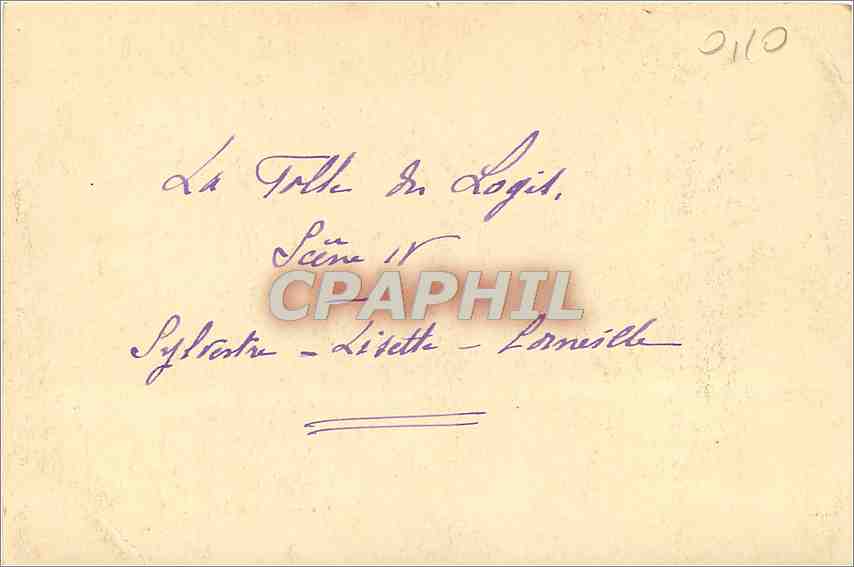 0,10
La Folle du Logis.
Scène IV
CPAPHIL
Sylvestre - Lisette - Dorneville